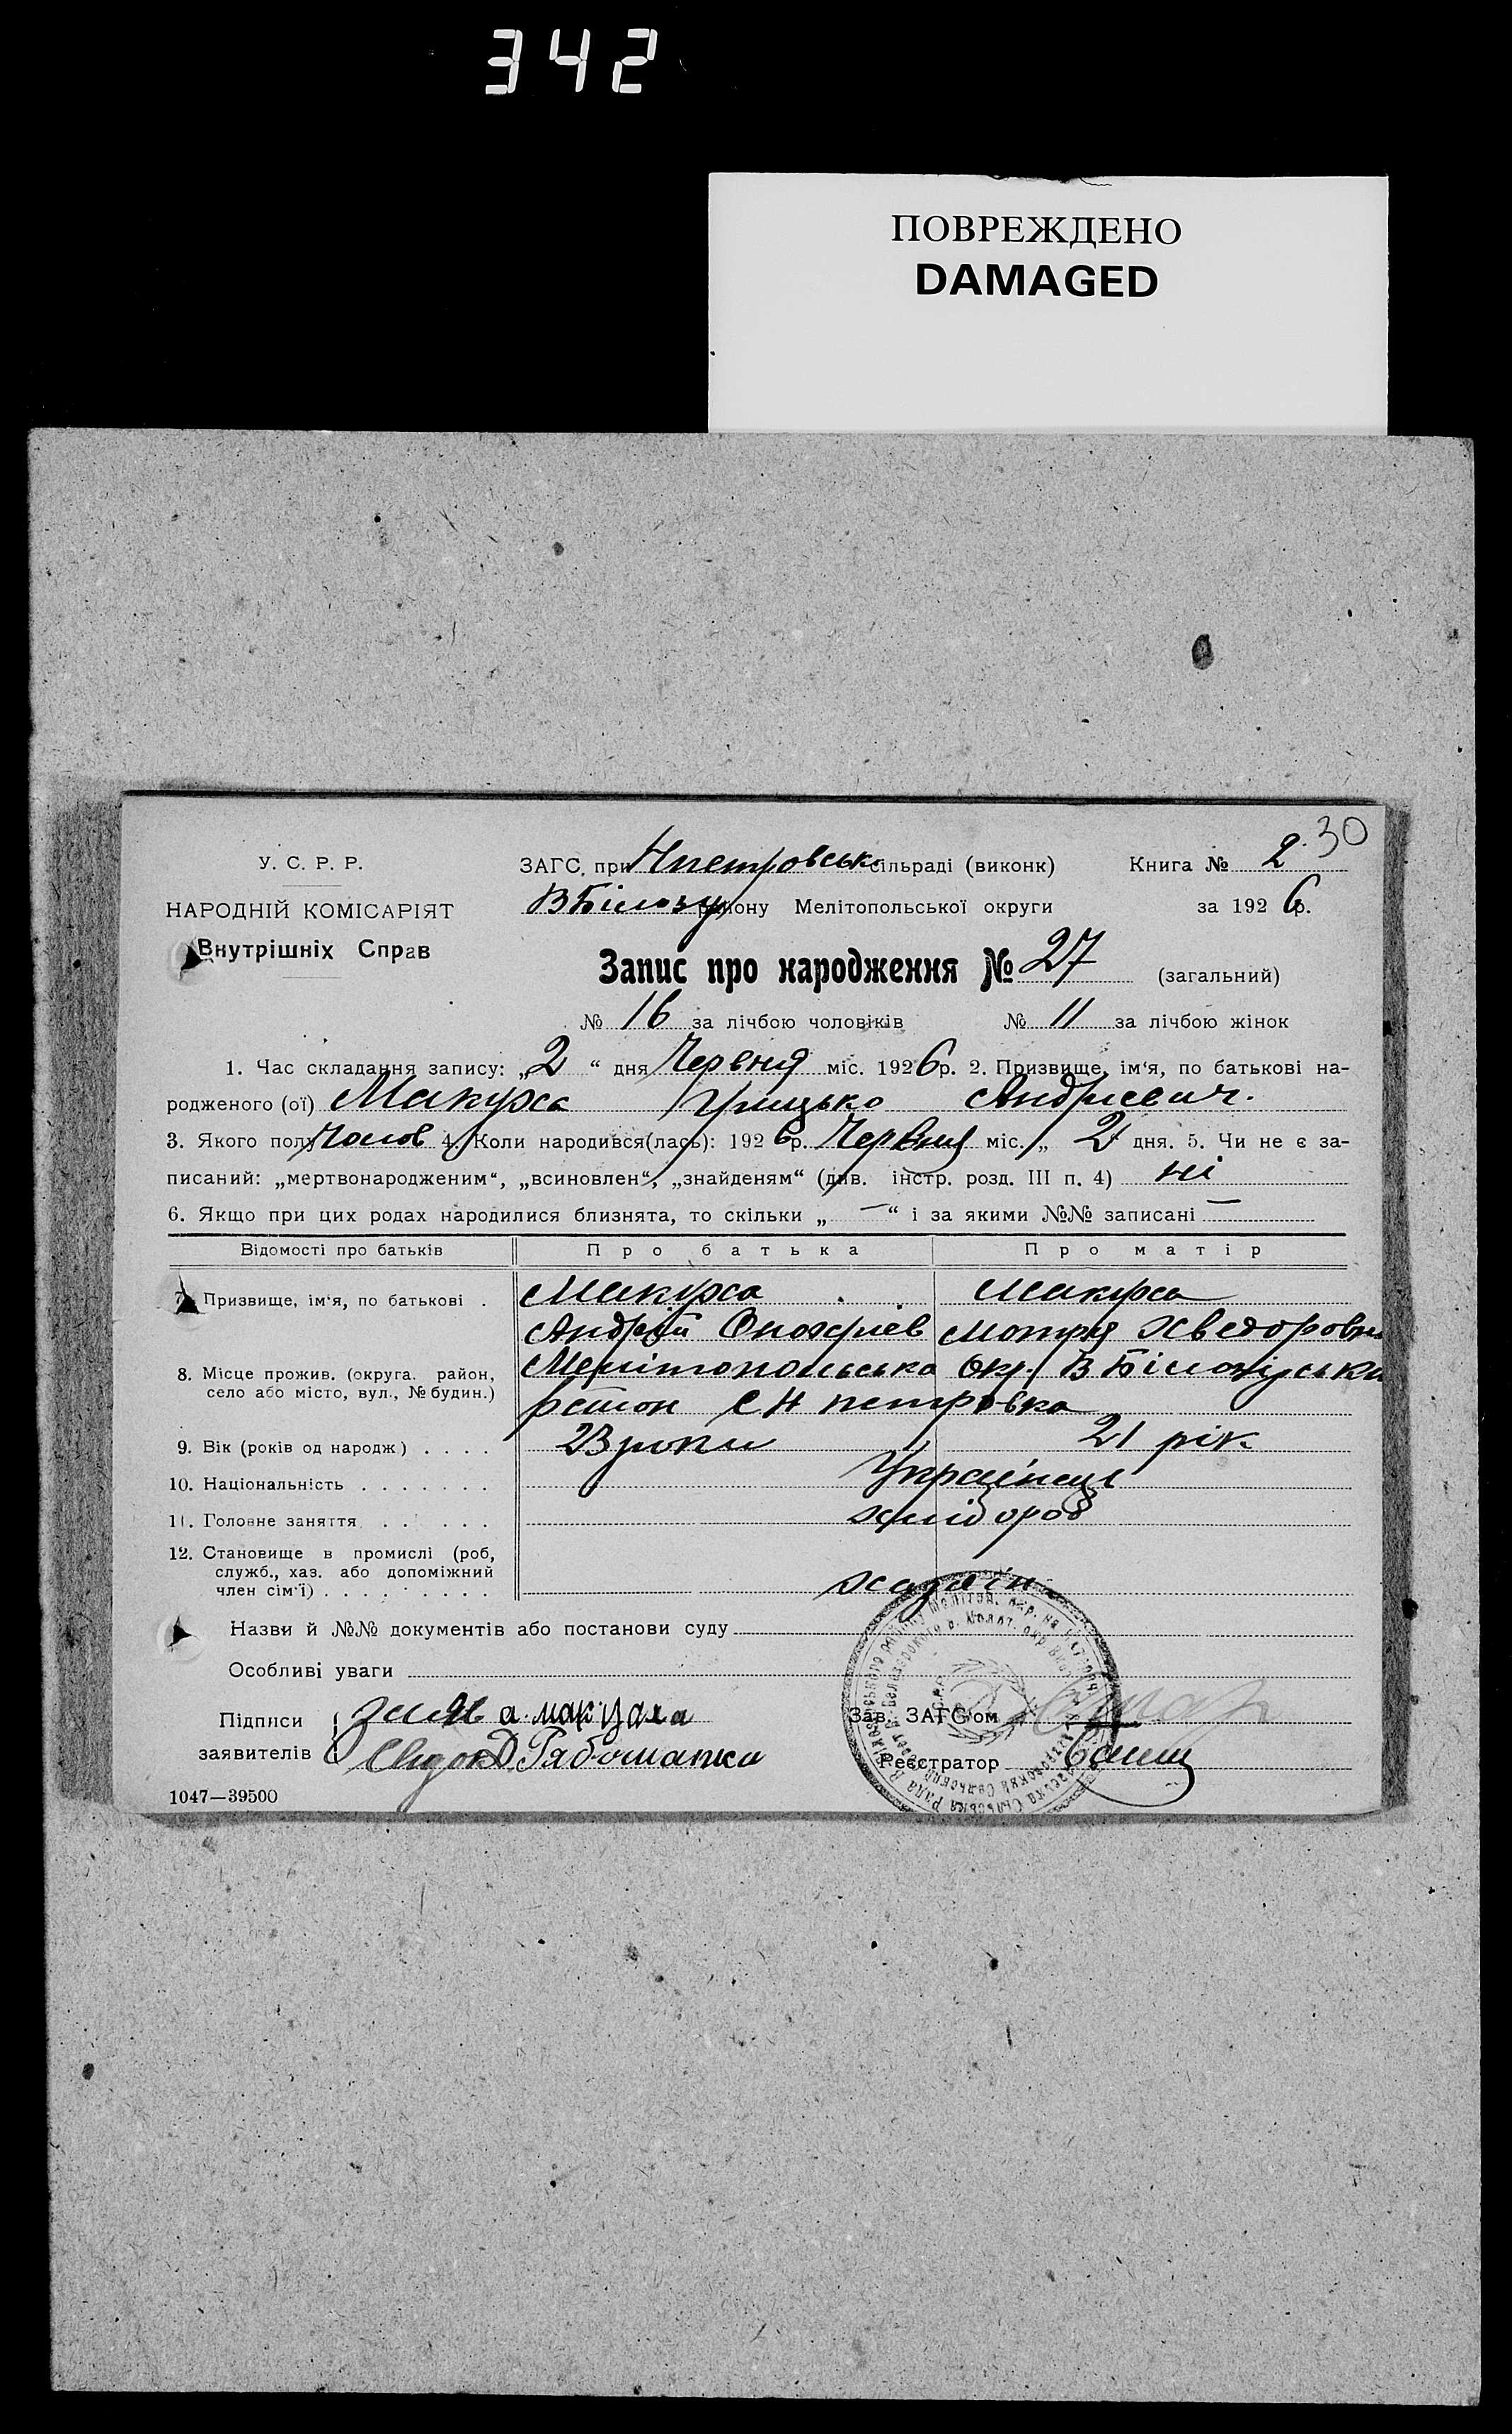 342
ПОВРЕЖДЕНО
DAMAGED
30
У. С. Р. Р.
ЗАГС. при Нпетровськ сільраді (виконк) Книга № 2
НАРОДНІЙ КОМІСАРІЯТ
ВБілозу району Мелітопольської округи за 1926р.
Внутрішніх Справ
Запис про народження № 27 (загальний)
№ 16 за лічбою чоловіків № 11 за лічбою жінок
1. Час складання запису: „2“ дня Червня міс. 1926р. 2. Призвище, ім‘я, по батькові на-
родженого (ої) Макуха Грицько Андриевич.
3. Якого полу Чолов 4. Коли народився(лась): 1926р. Червня міс. „ 2 дня. 5. Чи не є за-
писаний: „мертвонародженим“, „всиновлен“, „знайденям“ (див. інстр. розд. III п. 4) ні
6. Якщо при цих родах народилися близнята, то скільки „ — “ і за якими №№ записані —
Відомості про батьків Про батька Про матір
7. Призвище, ім‘я, по батькові . Макуха Макуха
Андрій Онохріев Мотря Хведоровн
8. Місце прожив. (округа. район, село або місто, вул., № будин.) Мелітопольська окр. ВБілозірськи
район С Н петровка
9. Вік (років од народж) . . . . 23 роки 21 рік
10. Національність . . . . . . . Украінець
11. Головне заняття . . . . . . хлібороб
12. Становище в промислі (роб,
служб., хаз. або допоміжний
член сім‘ї) . . . . . . . . . хазяін
Назви й №№ документів або постанови суду
Особливі уваги
Підписи
заявителів
Рябошапка
Зав. ЗАГС‘ом
Реєстратор
1047—39500